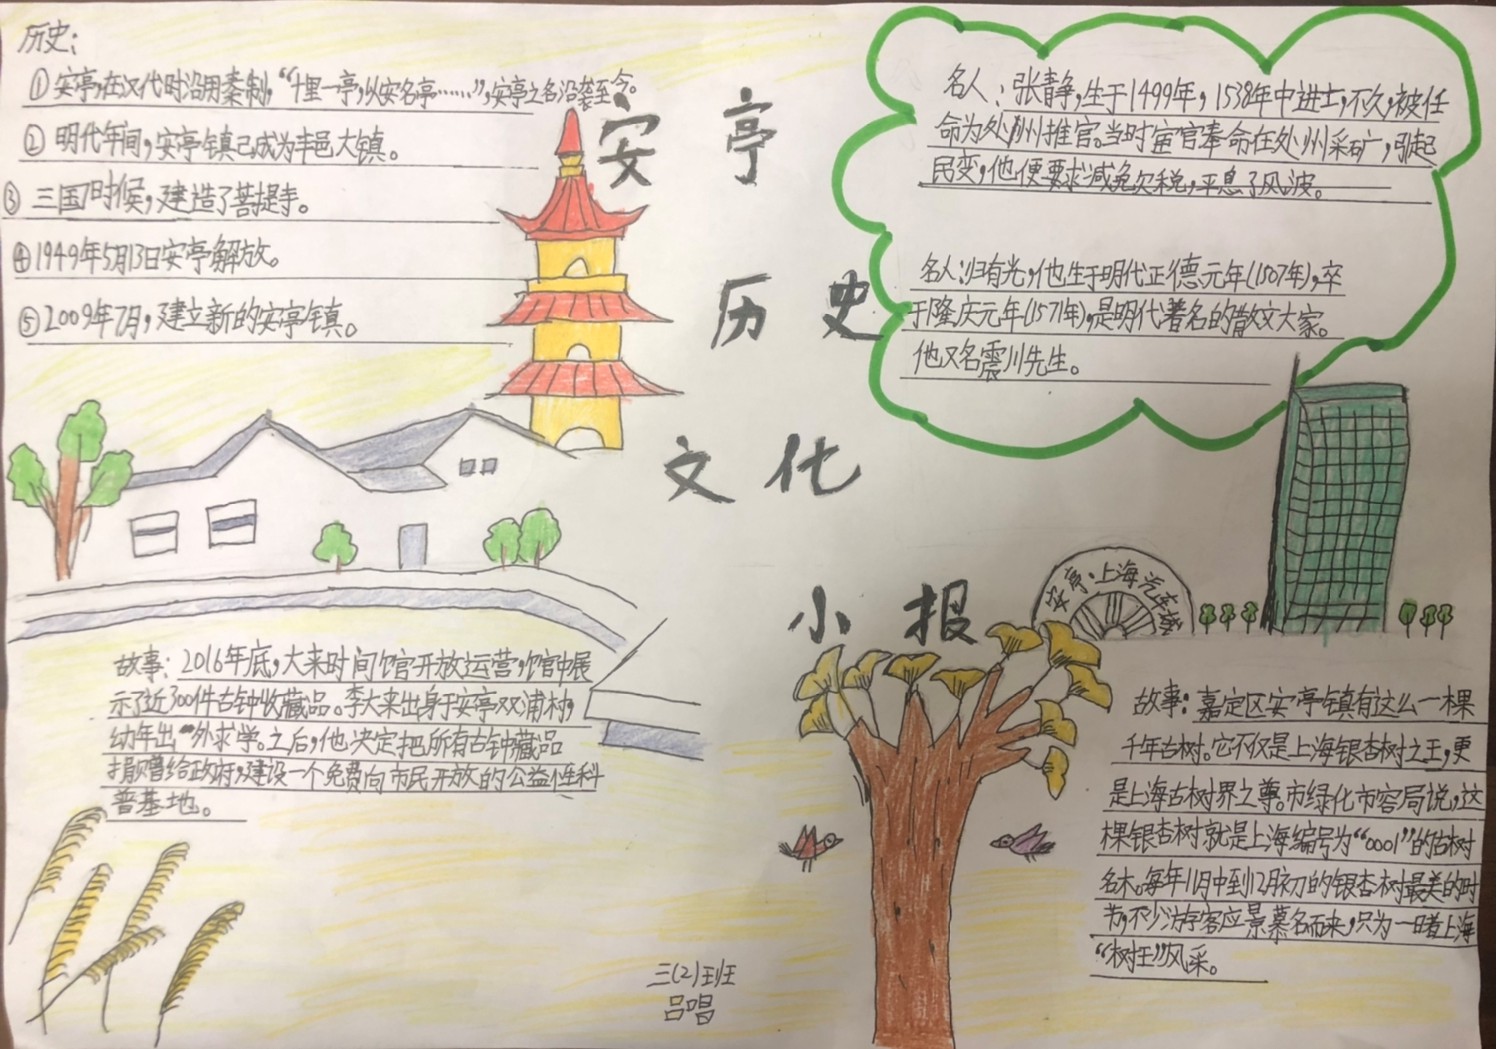 历史：
①安亭,在汉代时沿用秦制,“十里一亭,以安名亭……”,安亭之名沿袭至今。
②明代年间,安亭镇已成为丰邑大镇。
③三国时候,建造了菩提寺。
④1949年5月13日安亭解放。
⑤2009年7月,建立新的安亭镇。
安亭
历史
文化
小报
名人：张静,生于1499年,1538年中进士,不久,被任
命为处州推官。当时宦官奉命在处州采矿,引起
民变,他便要求减免欠税,平息了风波。
名人:归有光,他生于明代正德元年(1507年),卒
于隆庆元年(1571年),是明代著名的散文大家。
他又名震川先生。
安亭·上海汽车城
故事：2016年底,大来时间馆开放运营,馆中展
示了近300件古钟收藏品。李大来出身于安亭双浦村,
幼年出外求学。之后,他决定把所有古钟藏品
捐赠给政府,建设一个免费向市民开放的公益性科
普基地。
故事：嘉定区安亭镇有这么一棵
千年古树。它不仅是上海银杏树之王,更
是上海古树界之尊。市绿化市容局说,这
棵银杏树就是上海编号为“0001”的古树
名木。每年11月中到12月初的银杏树最美的时
节,不少游客应景慕名而来,只为一睹上海
“树王”风采。
三(2)班
吕唱